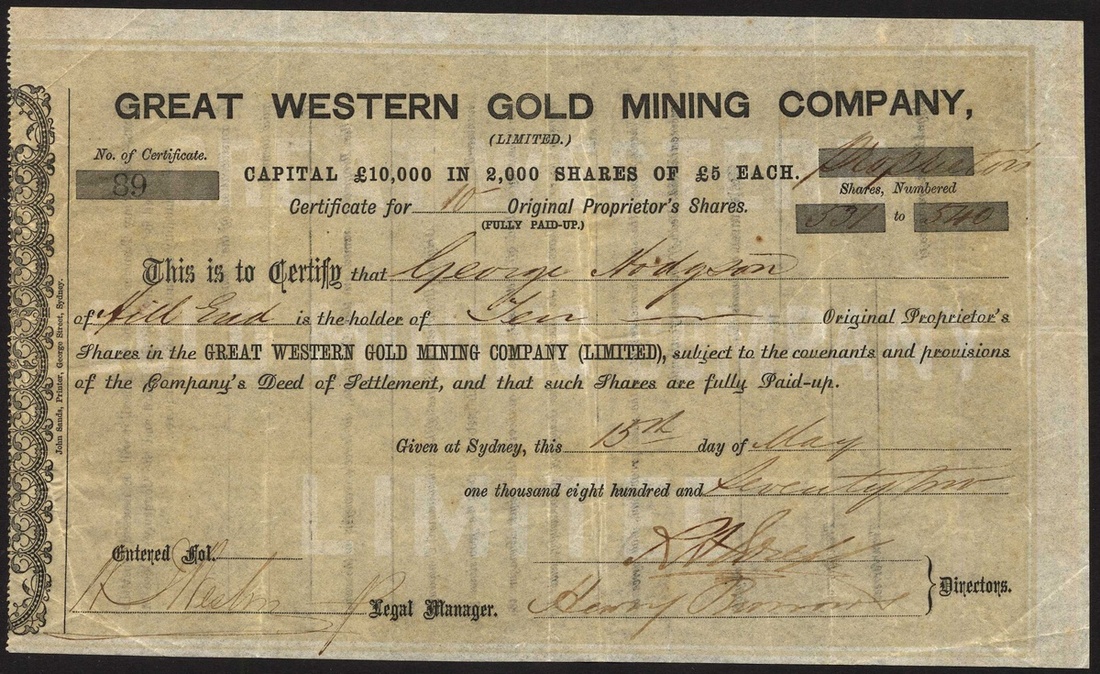 GREAT WESTERN GOLD MINING COMPANY,
(LIMITED.)
No. of Certificate.
89
CAPITAL £10,000 IN 2,000 SHARES OF £5 EACH.
Proprietors
Shares, Numbered
531 to 540
Certificate for 10 Original Proprietor's Shares.
(FULLY PAID-UP.)
This is to Certify that George Hodgson
of Hill End is the holder of Ten Original Proprietor's
Shares in the GREAT WESTERN GOLD MINING COMPANY (LIMITED), subject to the covenants and provisions
of the Company's Deed of Settlement, and that such Shares are fully Paid-up.
Given at Sydney, this 15th day of May
one thousand eight hundred and Seventy two
Entered Fol.
Legal Manager.
Henry
Directors.
John Sands, Printer, George Street, Sydney.